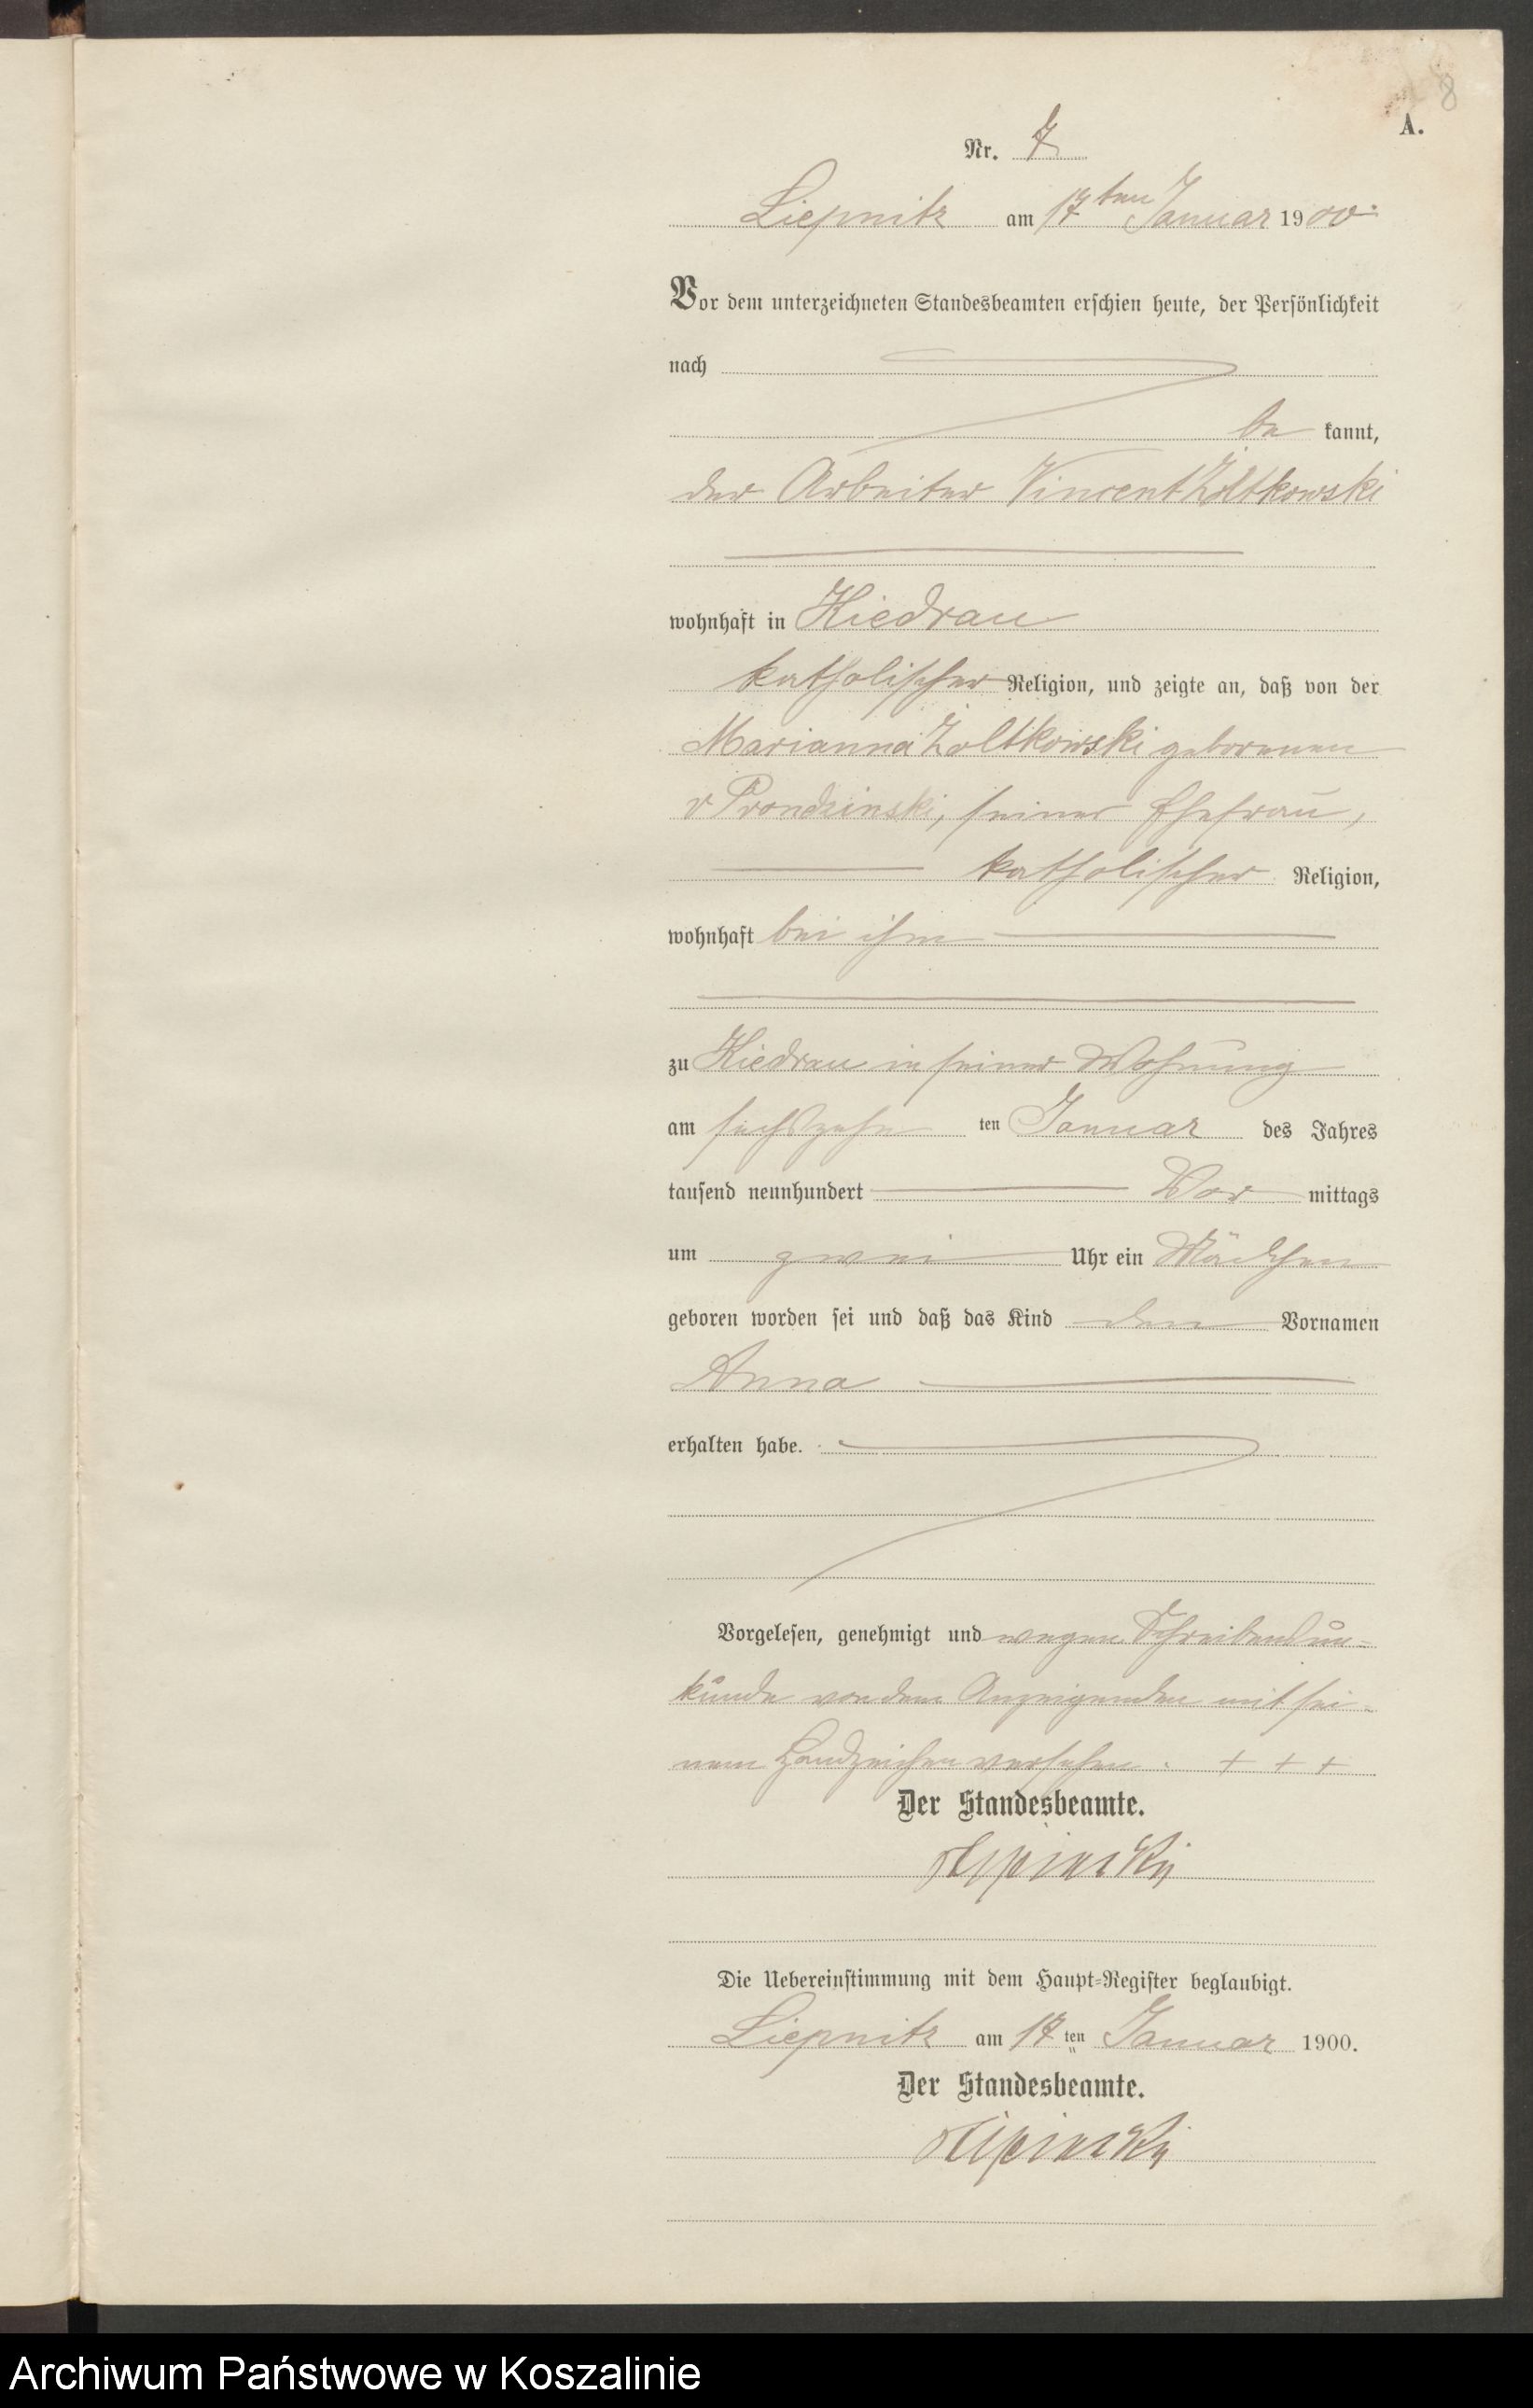 8
A.
Nr. 7
Liepnitz am 17ten Januar 1900.
Vor dem unterzeichneten Standesbeamten erschien heute, der Persönlichkeit
nach
be kannt,
der Arbeiter Vincent Żoltkowski
wohnhaft in Kiedrau
katholischer Religion, und zeigte an, daß von der
Marianna Żoltkowski geborenen
v Prondzinski, seiner Ehefrau,
katholischer Religion,
wohnhaft bei ihm
zu Kiedrau in seiner Wohnung
am sechszehn ten Januar des Jahres
tausend neunhundert Vor mittags
um zwei Uhr ein Mädchen
geboren worden sei und daß das Kind den Vornamen
Anna
erhalten habe.
Vorgelesen, genehmigt und wegen Schreibensun-
kunde von dem Anzeigenden mit sei-
nem Handzeichen versehen. + + +
Der Standesbeamte.
Die Uebereinstimmung mit dem Haupt-Register beglaubigt.
Liepnitz am 17 ten Januar 1900.
Der Standesbeamte.
Archiwum Państwowe w Koszalinie